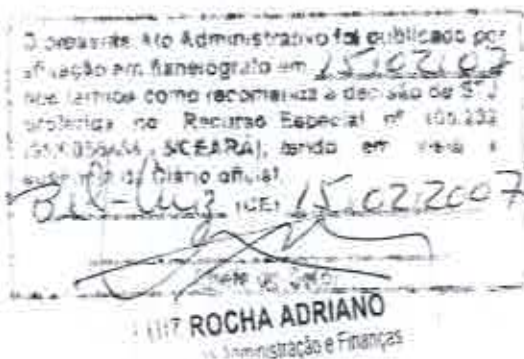 O presente Ato Administrativo foi publicado por
afixação em flanelografo em 15.02.07
nos termos como recomenda a decisão do STJ
proferida no Recurso Especial nº 105.232
CEARA), tendo em vista a
do Diário oficial.
(CE) 15.02.2007
ROCHA ADRIANO
Administração e Finanças